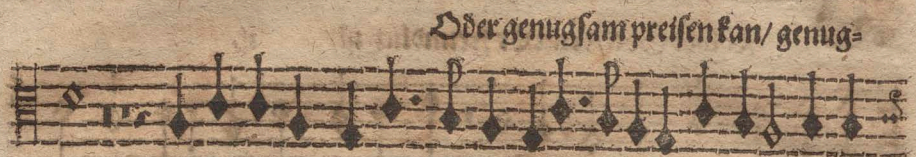 Oder genugſam preiſen kan/ genug⸗